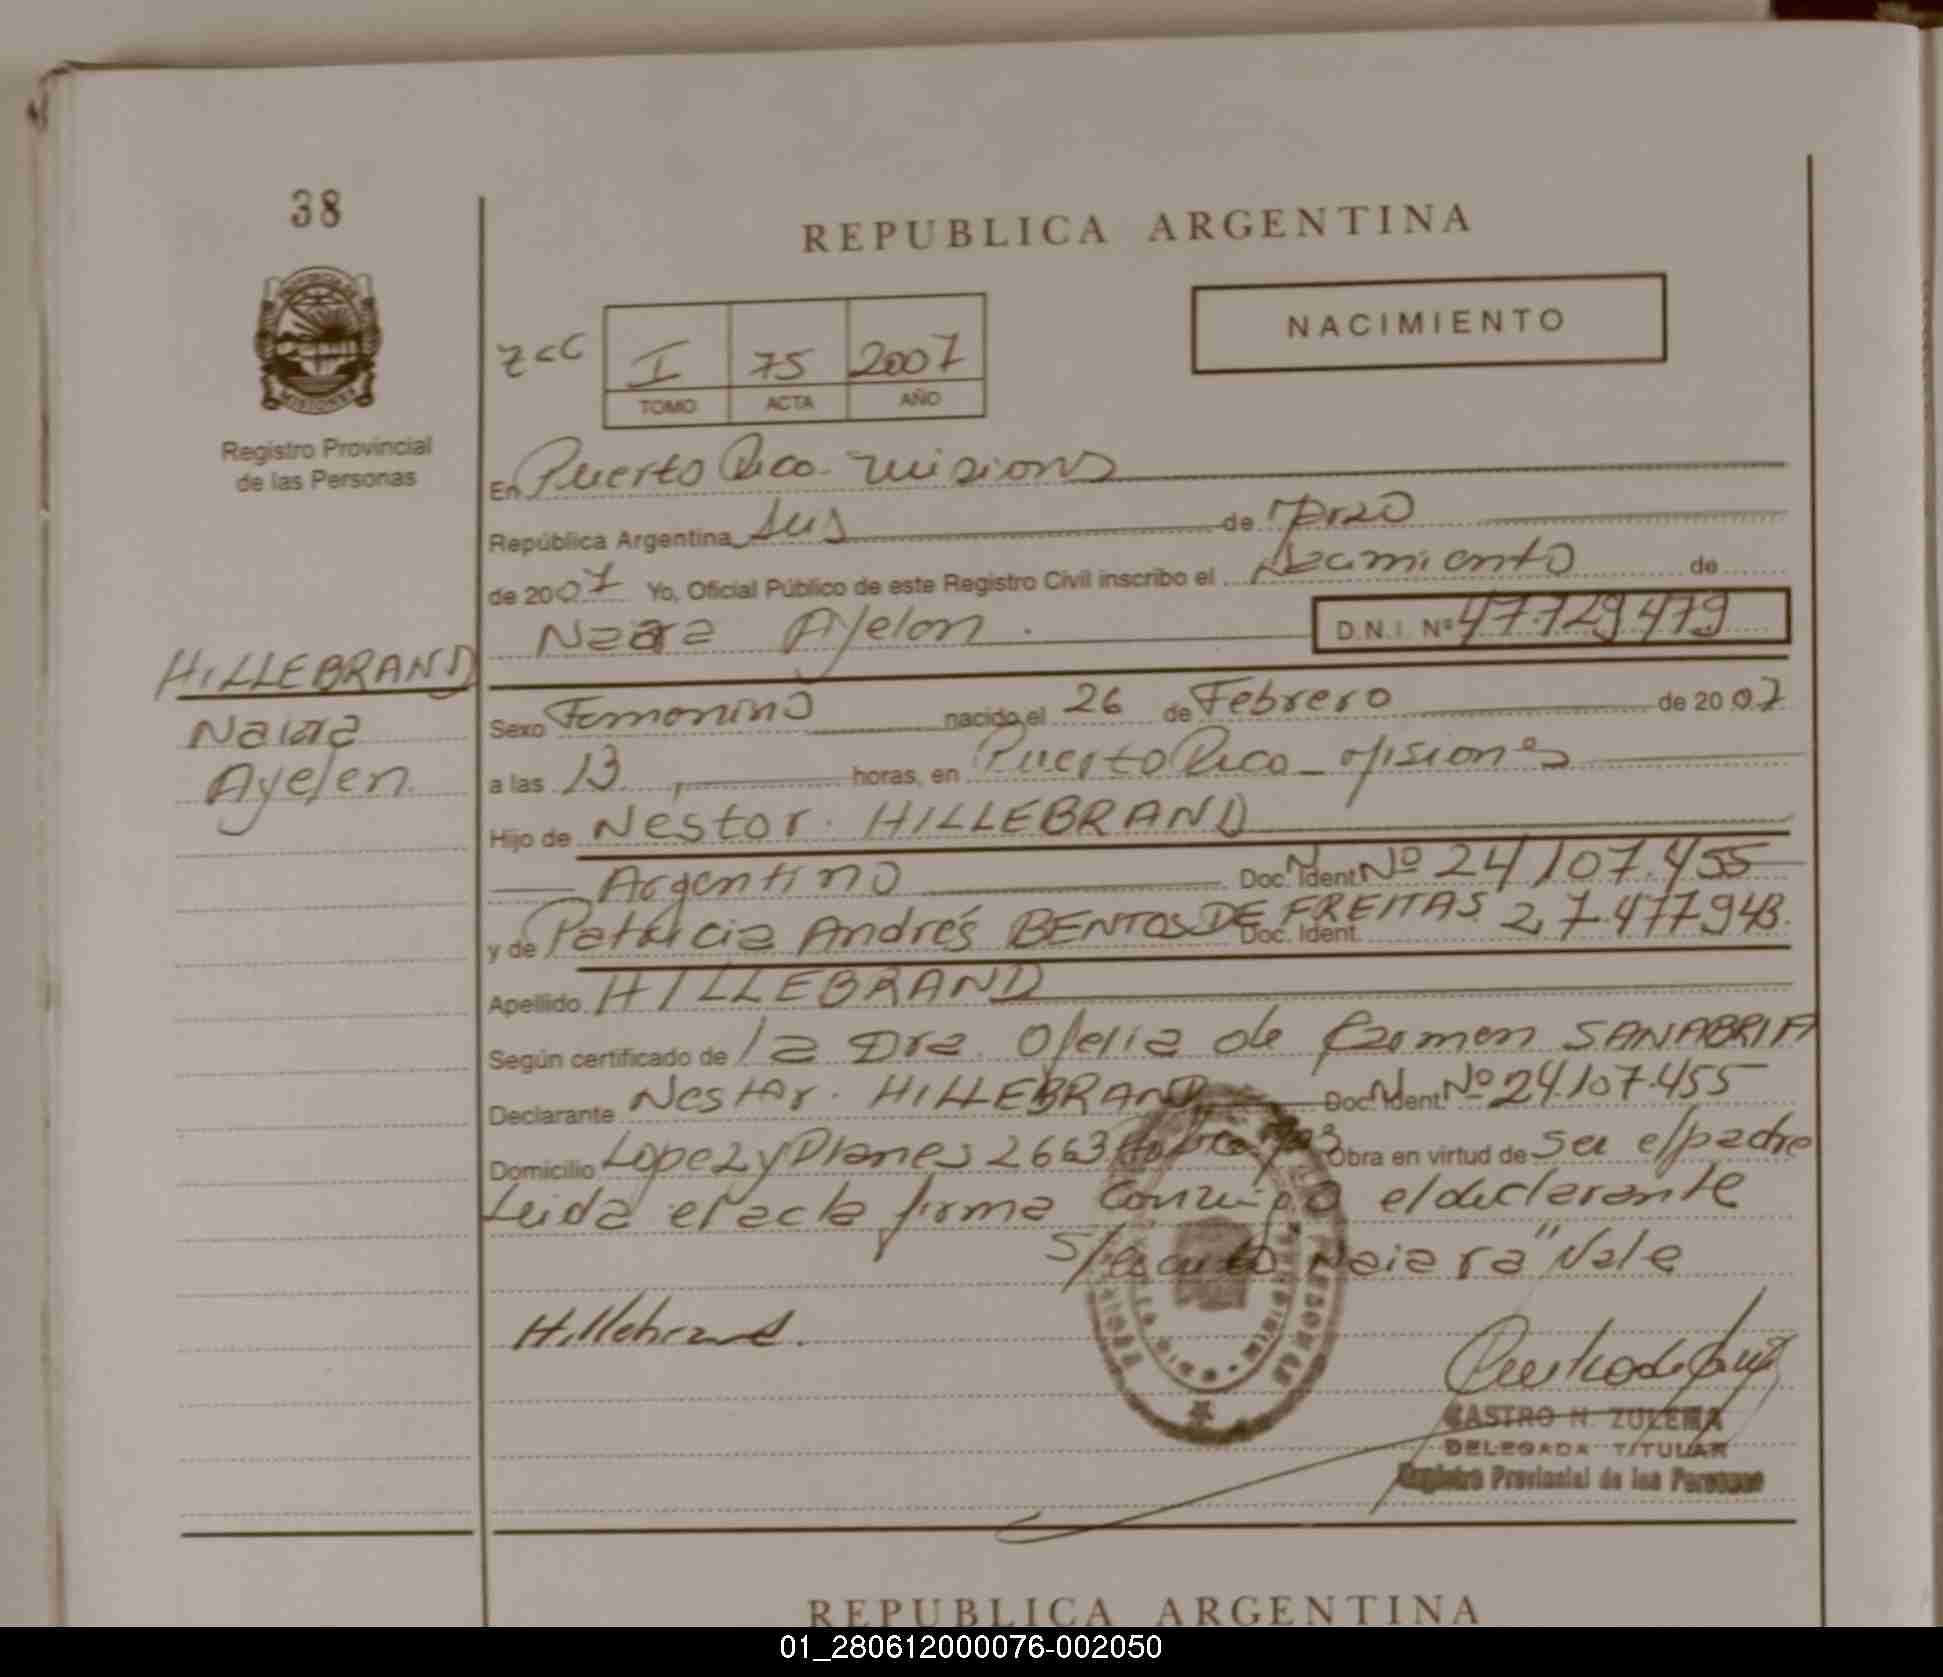 38
REPUBLICA ARGENTINA
NACIMIENTO
I 75 2007
TOMO ACTA AÑO
MISIONES
Registro Provincial
de las Personas
En Puerto Rico - Misiones
República Argentina, seis de Marzo
de 2007 Yo, Oficial Público de este Registro Civil inscribo el Nacimiento de
Ayelen. D.N.I. Nº 47.729.479
HILLEBRAND
Naiara
Ayelen
Sexo Femenino nacido el 26 de Febrero de 2007
a las 13 horas, en Puerto Rico - Misiones
Hijo de Nestor HILLEBRAND
Argentino Doc. Ident. Nº 24.107.455
y de Patricia Andrés BENTOS DE FREITAS Doc. Ident. 27.477.943
Apellido HILLEBRAND
Según certificado de la Dra. Ofelia de Carmen SANABRIA
Declarante Nestor HILLEBRAND Doc. Ident. Nº 24.107.455
Domicilio Lopez y Planes 2663 Obra en virtud de ser el padre
Leida el acta firma conmigo el declarante
"Naiara" Vale
Hillebrand
CASTRO N. ZULEMA
DELEGADA TITULAR
Registro Provincial de las Personas
REPUBLICA ARGENTINA
01_280612000076-002050